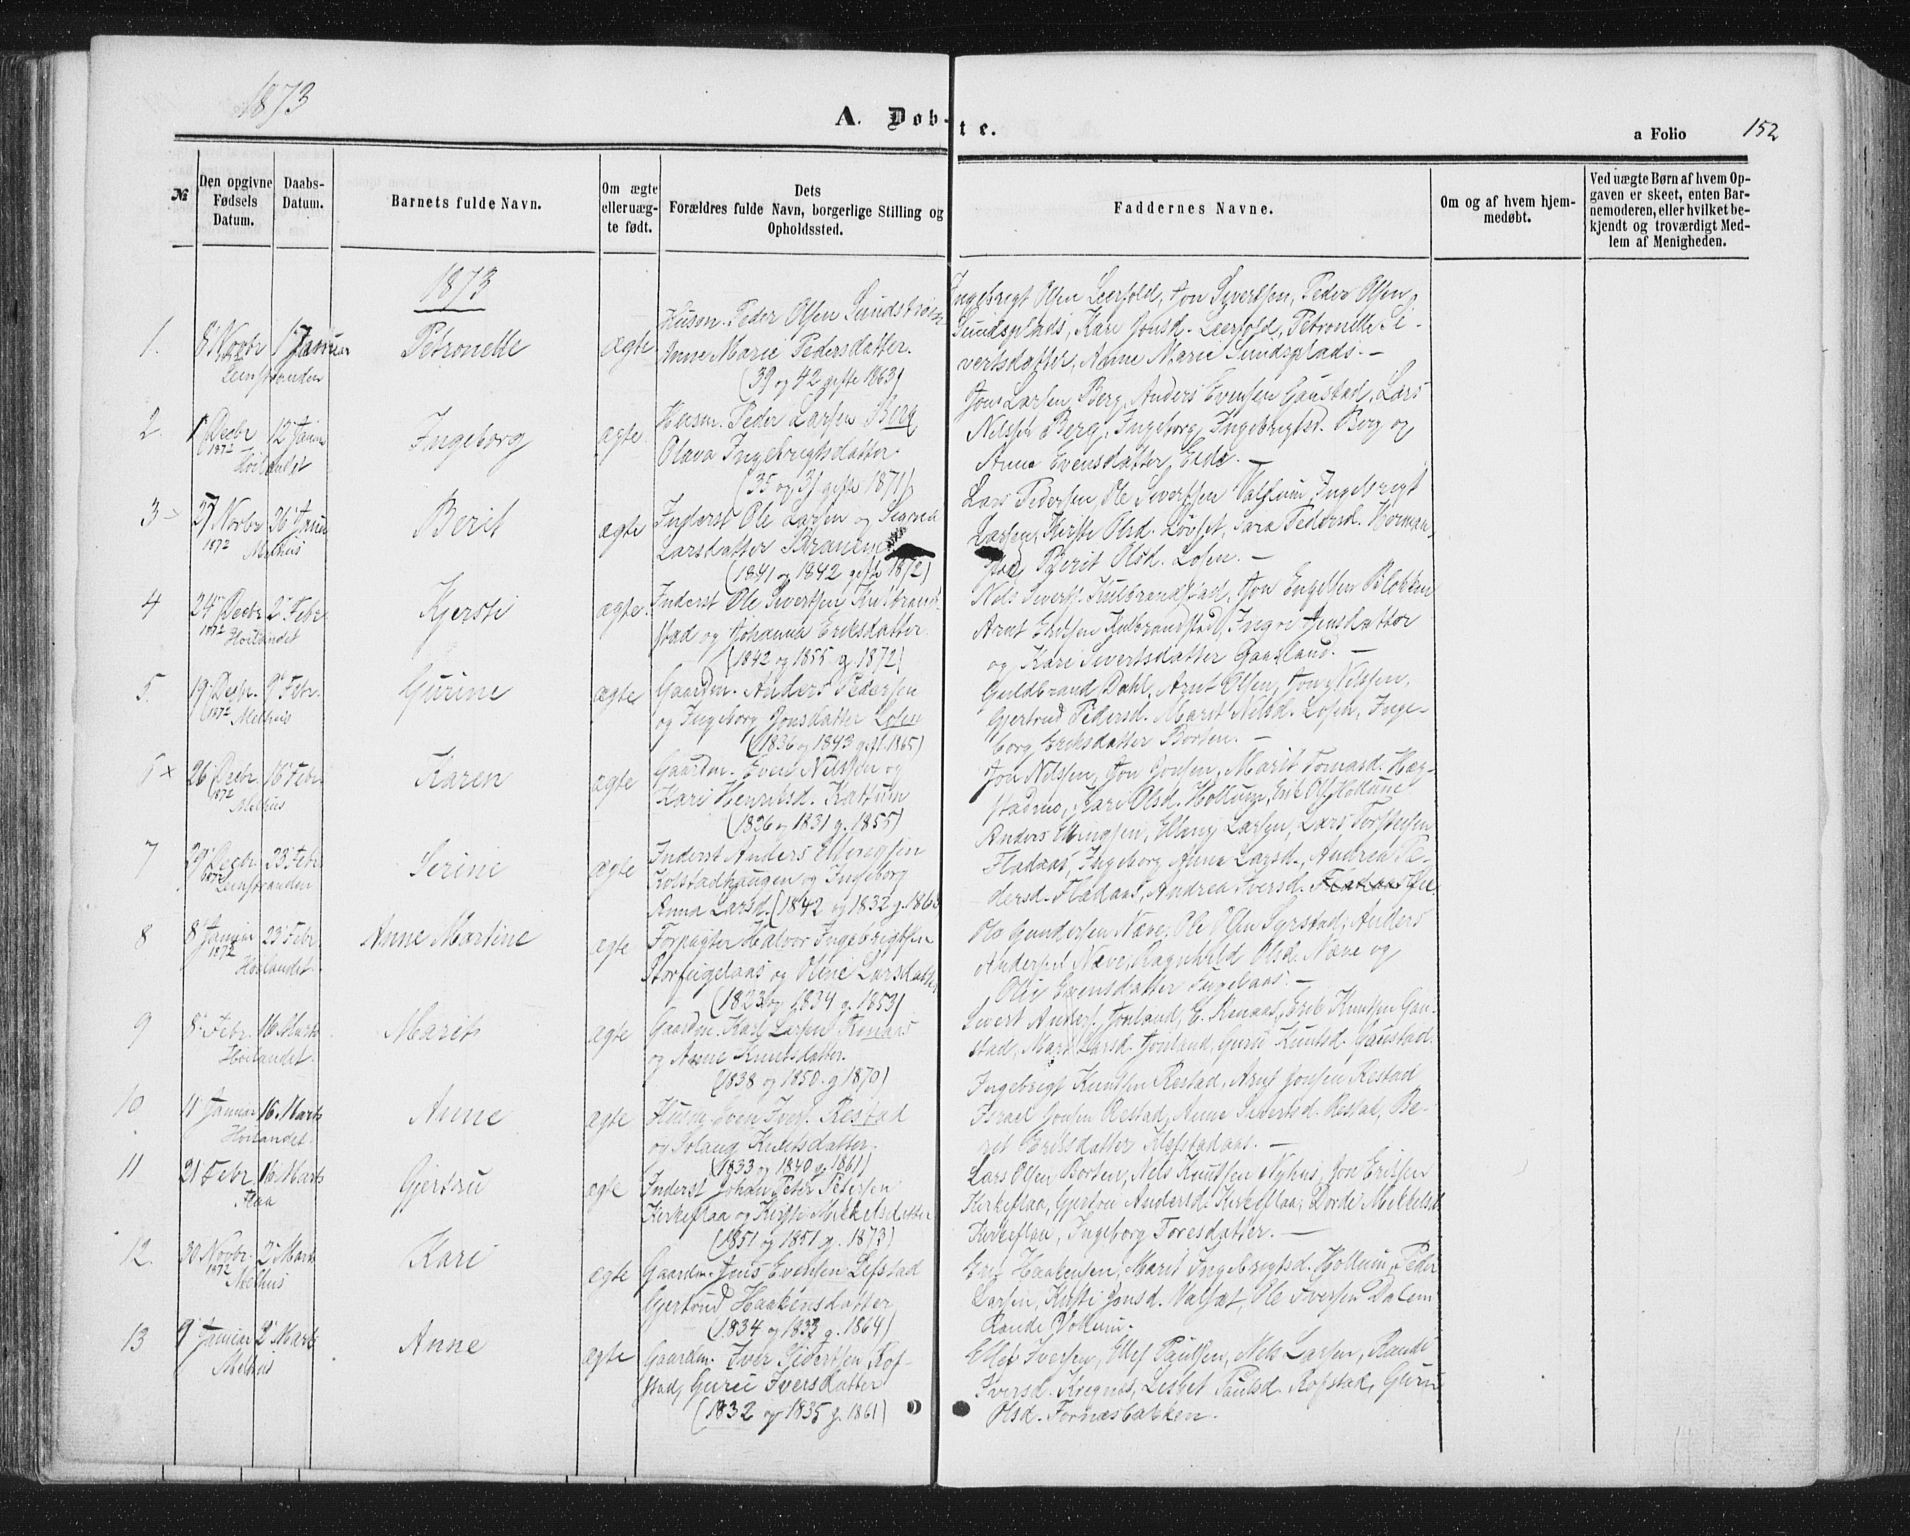 1873
A. Døb-
te.
a Folio 152
№
Den opgivne Fødsels Datum.
Daabs-Datum.
Barnets fulde Navn.
Om ægte eller uæg-te født.
Dets Forældres fulde Navn, borgerlige Stilling og Opholdssted.
Faddernes Navne.
Om og af hvem hjem-medøbt.
Ved uægte Børn af hvem Op-gaven er skeet, enten Bar-nemoderen, eller hvilket be-kjendt og troværdigt Med-lem af Menigheden.
1873
1. 8 Novbr 1 Januar Petronelle ægte
1872 Leinstranden
Husm. Peder Olsen
Anne Marie Pedersdatter.
(39 og 42 gifte 1863)
Ingebrigt Olsen Leerfold, Jon Syvertsen, Peder Olsen
Sundsplads, Kari Jonsd. Leerfold, Petronelle Si-
vertsdatter, Anne Marie Sundsplads. —
2. 1 Decbr 12 Januar Ingeborg ægte
1872 Høilandet
Husm. Peder Larsen Berg
Olava Ingebrigtsdatter.
(35 og 31 gifte 1871)
Jon Larsen Berg, Anders Evensen Gaustad, Lars
Nilssen Berg, Ingeborg Ingebrigtsd. Berg og
Anne Evensdatter Eide. —
3 27 Novbr 26 Januar Berit ægte
1872 Melhus
Inderst Ole Larsen og
Larsdatter
(1841 og 1842 gifte 1872)
Lars Pedersen, Ole Sivertsen Ingebrigt
Larsen, Kirsti Olsd. Løvset, Sara Pedersd.
Berit Olsd. Losen. —
4 24 Decbr 2 Febr. Kjersti ægte
1872 Høilandet
Inderst Ole Sivertsen Kulbrand-
stad og Johanna Eriksdatter
(1842 og 1855 g. 1872)
Nils Siverts. Kulbrandstad, Jon Engelsen Blokken
Arnt Eriksen Kulbrandstad, Jensdatter
og Kari Sivertsdatter Gaasland. —
5. 19 Decbr. 9 Febr. Gurine ægte
1872 Melhus
Gaardm. Anders Pedersen
og Ingeborg Jonsdatter Losen
(1836 og 1843 gift. 1865)
Guldbrand Dahl, Arnt Olsen, Jon Nilssen,
Gjertrud Pedersd. Marit Nilsd. Losen, Inge-
borg Eriksdatter Borten. —
26 Decbr 16 Febr. Karen ægte
1872 Melhus
Gaardm. Even Nilssen og
Kari Henriksd.
(1826 og 1831 g. 1855)
Jon Nilssen, Jon Jonsen, Marit Tomasd. Hag-
Kari Olsd. Hollum, Erik Ols. Hollum
7 29 Decbr 23 Febr Serine ægte
1872 Leinstranden
Inderst Anders Ellingsen
Kolstadhaugen og Ingeborg
Anna Larsd. (1842 og 1832 g. 1863
Anders Ellingsen, Elling Larsen, Lars Torstensen
Fladaas, Ingeborg Anna Larsd., Andrea Pe-
dersd. Fladaas, Andrea Iversd.
8 8 Januar 23 Febr. Anne Martine ægte
1872 Høilandet
Forpagter Halvor Ingebrigtsen
Storfuglaas og Oline Larsdatter
(1823 og 1834 g. 1853)
Ole Gundersen Næve, Ole Olsen Syrstad, Anders
Andersen Næve, Ragnhild Olsd. Næve og
Evensdatter Fuglaas. —
9 8 Febr. 16 Marts Marit ægte
Høilandet
Gaardm. Karl Larsen
og Anne Knutsdatter.
(1838 og 1850. g 1870)
Sivert Anders. Jonland, E. Renaas, Erik Knutsen Gau-
stad, Larsd. Jonland, Guru Knutsd. Gaustad.
10 11 Januar 16 Marts Anne ægte
Høilandet
Husm. Even Ivers. Restad
og Solaug Knutsdatter.
(1833 og 1840 g. 1861)
Ingebrigt Knutsen Restad, Arnt Jonsen Restad
Israel Jonsen Restad, Anne Sivertsd. Restad, Be-
ret Eriksdatter —
11 21 Febr. 16 Marts Gjertru ægte
Flaa
Inderst Johan Peter Petersen
Kirkeflaa og Kirsti Mikkelsdatter
(1851 og 1851 g. 1873)
Lars Olsen Borten, Nils Knutsen Nyhus, Jon Eriksen
Kirkeflaa, Gjertru Andersd. Kirkeflaa, Dordi Mikkelsd
Kirkeflaa, Ingeborg Toresdatter. —
12. 30 Novbr. 2 Marts Kari ægte
1872 Melhus
Gaardm. Jens Evensen Lefstad
Gjertrud Haakensdatter
(1834 og 1832 g. 1864)
Haakensen, Marit Ingebrigtsd. Hollum, Peder
Larsen, Kirsti Jonsd. Valset, Ole Iversen Dalem
Rande
13 9 Januar 2 Marts Anne ægte
Melhus
Gaardm. Iver Sivertsen Rof-
stad, Guru Iversdatter
(1832 og 1835 g. 1861)
Ellef Iversen, Ellef Paulsen, Nils Larsen, Randi
Iversd. Kregnes, Lisbet Paulsd. Rofstad, Guru
Olsd. Fornæsbakken.